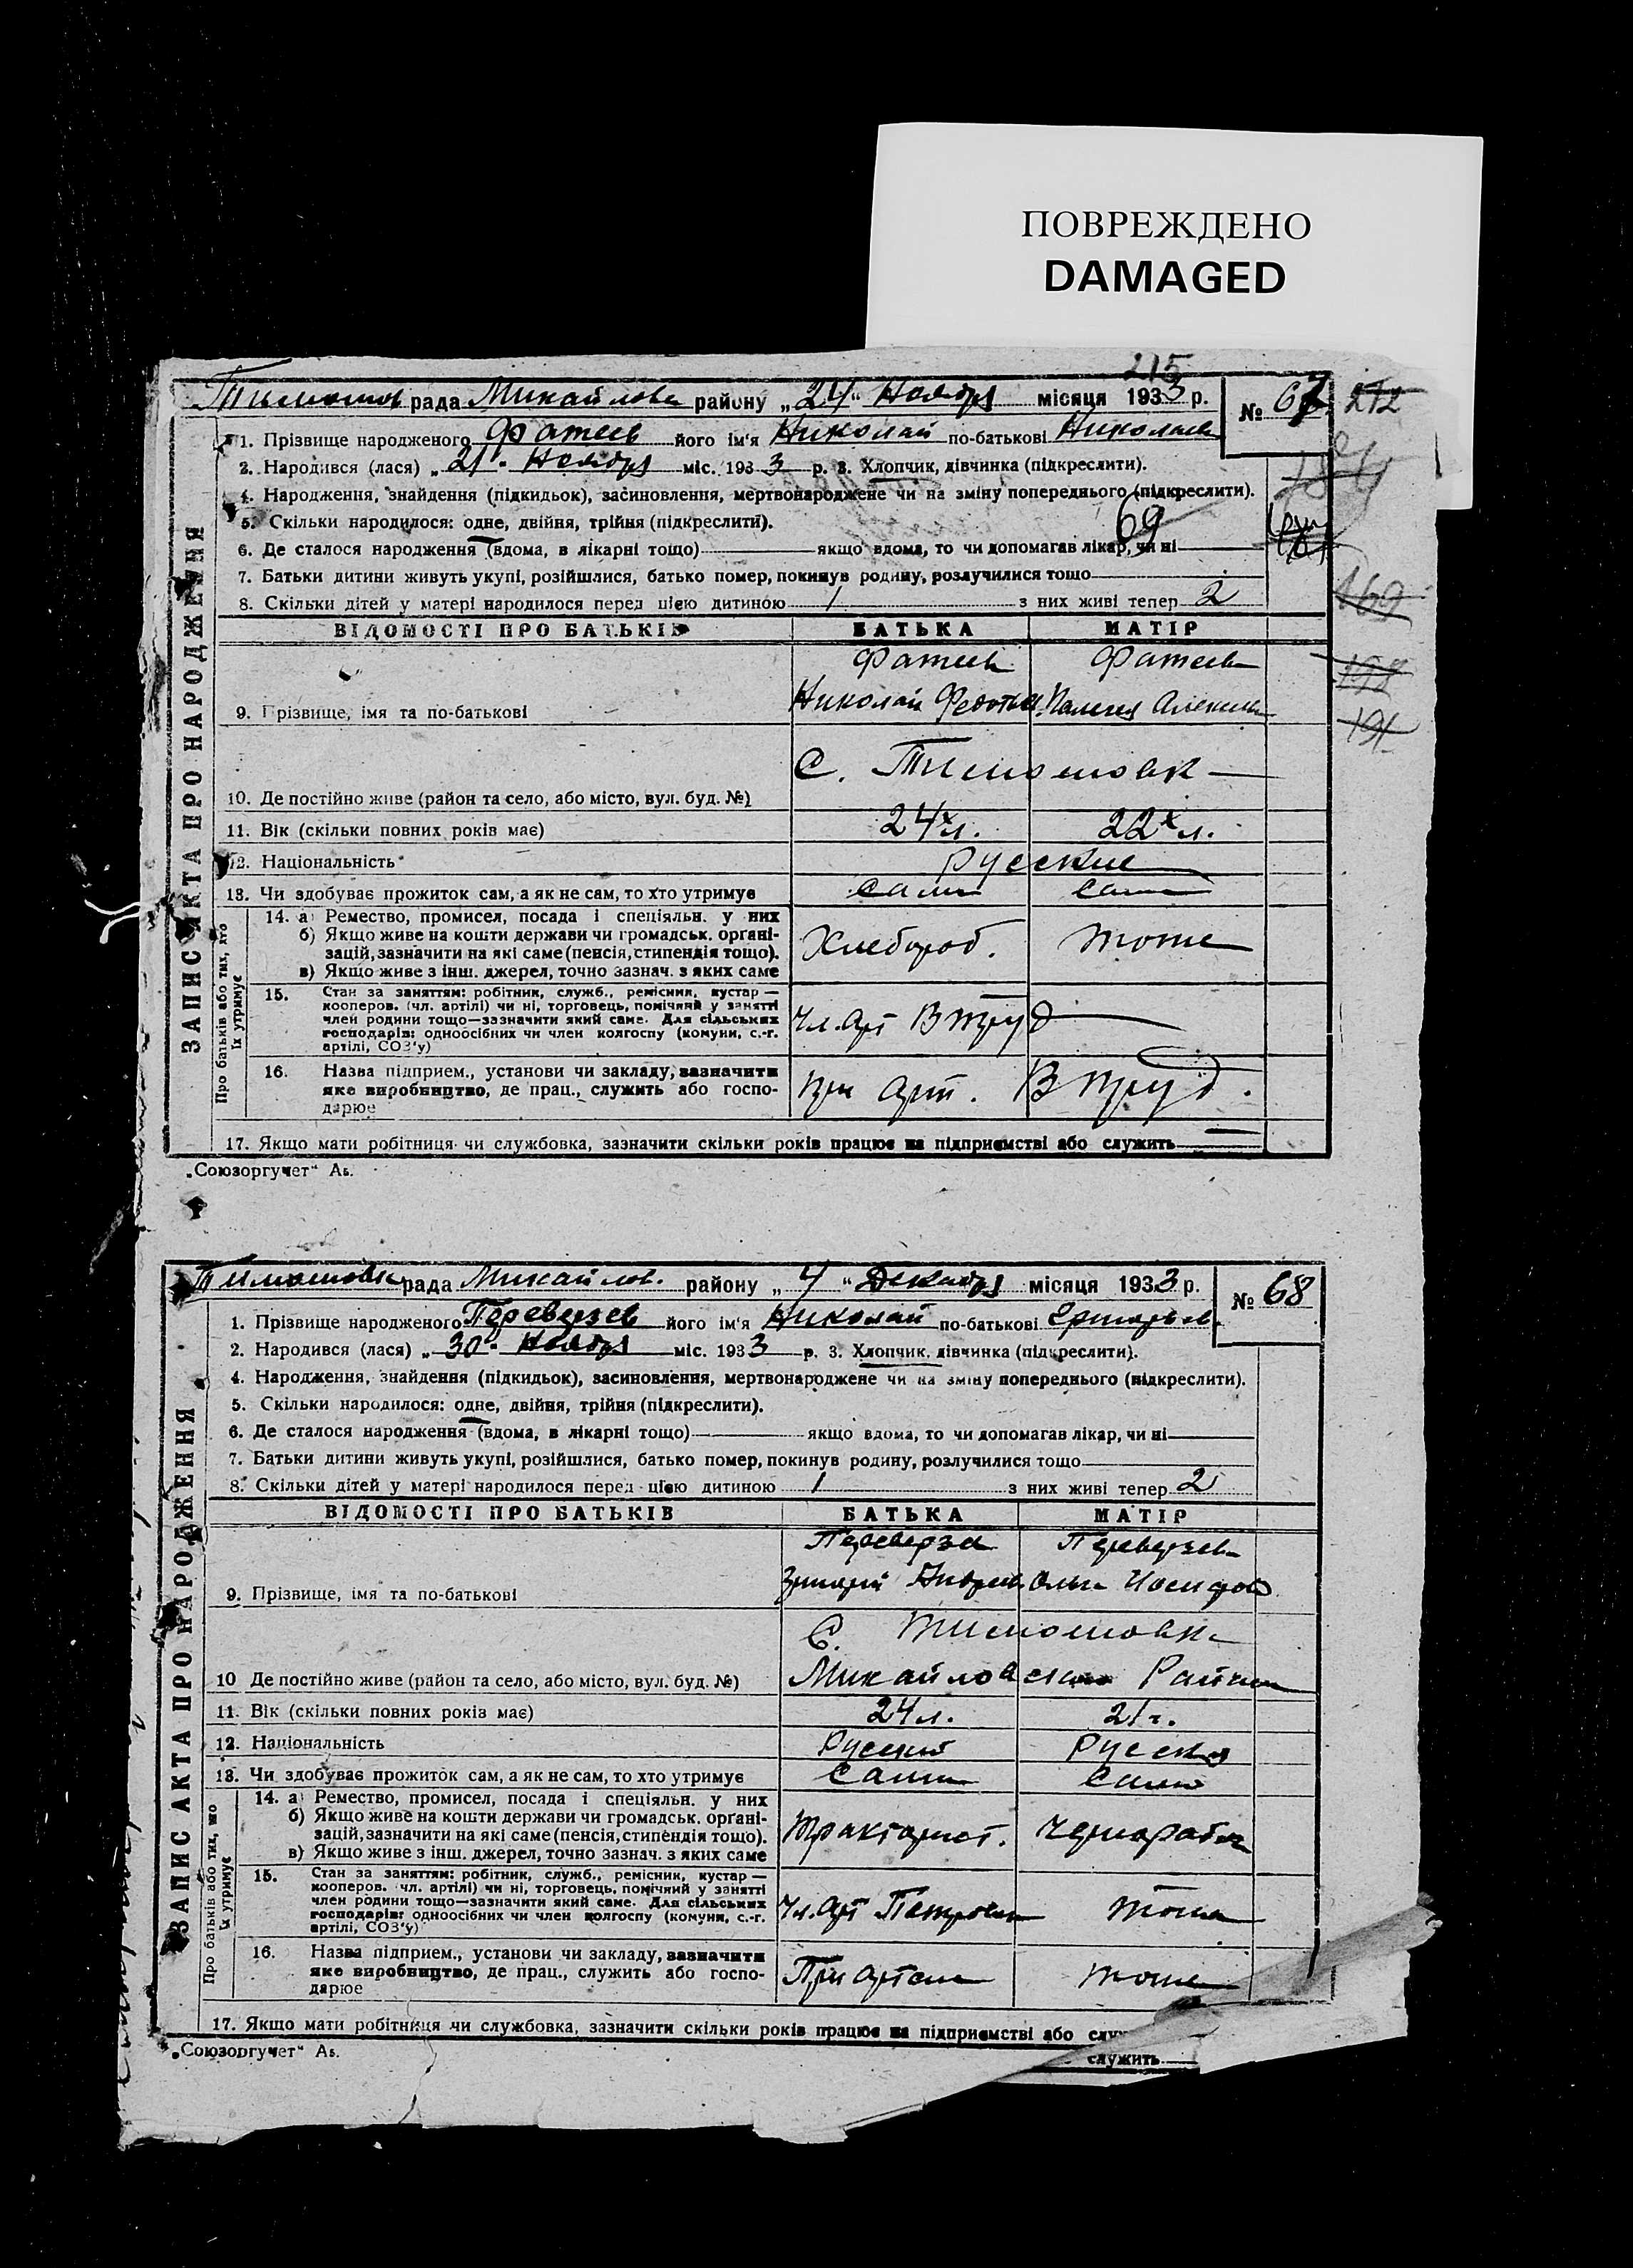 ПОВРЕЖДЕНО
DAMAGED
215
Тимошов рада Михайлов району „24“ Ноября місяця 1933 р. № 67 212
1. Прізвище народженого Фатеев його ім'я Николай по-батькові Николаев
2. Народився (лася) „21“ Ноября міс. 1933 р. 3. Хлопчик, дівчинка (підкреслити).
4. Народження, знайдення (підкидьок), засиновлення, мертвонароджене чи на зміну попереднього (підкреслити).
5. Скільки народилося: одне, двійня, трійня (підкреслити).
69
6. Де сталося народження (вдома, в лікарні тощо) якщо вдома, то чи допомагав лікар, чи ні
7. Батьки дитини живуть укупі, розійшлися, батько помер, покинув родину, розлучилися тощо
8. Скільки дітей у матері народилося перед цією дитиною 1 з них живі тепер 2
169
ВІДОМОСТІ ПРО БАТЬКІВ БАТЬКА МАТІР
Фатеев Фатеева
192
9. Прізвище, імя та по-батькові Николай Федотов. Пелагея Алексеев
191
С. Тимошовк
10. Де постійно живе (район та село, або місто, вул. буд. №)
11. Вік (скільки повних років має) 24х л. 22х л.
12. Національність Русские
13. Чи здобуває прожиток сам, а як не сам, то хто утримує сами сами
14. а) Ремество, промисел, посада і спеціяльн. у них
б) Якщо живе на кошти держави чи громадськ. органі-
зацій, зазначити на які саме (пенсія, стипендія тощо).
в) Якщо живе з інш. джерел, точно зазнач. з яких саме
Хлебороб. тоже
15. Стан за заняттям: робітник, служб., ремісник, кустар —
кооперов. (чл. артілі) чи ні, торговець, помічний у занятті
член родини тощо—зазначити який саме. Для сільських
господарів: одноосібних чи член колгоспу (комуни, с.-г.
артілі, СОЗ'у)
Чл. арт В труд
16. Назва підприєм., установи чи закладу, зазначити
яке виробництво, де прац., служить або госпо-
дарює
при арт. В труд.
17. Якщо мати робітниця чи службовка, зазначити скільки років працює на підприємстві або служить
ЗАПИС АКТА ПРО НАРОДЖЕННЯ
Про батьків або тих, хто
їх утримує
„Союзоргучет“ Аь.
Тимошовк рада Михайлов. району „4“ Декабря місяця 1933 р. № 68
1. Прізвище народженого Переверзев його ім'я Николай по-батькові Григорьев
2. Народився (лася) „30“ Ноября міс. 1933 р. 3. Хлопчик, дівчинка (підкреслити).
4. Народження, знайдення (підкидьок), засиновлення, мертвонароджене чи на зміну попереднього (підкреслити).
5. Скільки народилося: одне, двійня, трійня (підкреслити).
6. Де сталося народження (вдома, в лікарні тощо) якщо вдома, то чи допомагав лікар, чи ні
7. Батьки дитини живуть укупі, розійшлися, батько помер, покинув родину, розлучилися тощо
8. Скільки дітей у матері народилося перед цією дитиною 1 з них живі тепер 2
ВІДОМОСТІ ПРО БАТЬКІВ БАТЬКА МАТІР
Переверзев Переверзев
9. Прізвище, імя та по-батькові Григорий Андреев Ольга Иосифов
С. Тимошовка
10 Де постійно живе (район та село, або місто, вул. буд. №) Михайловского Района
11. Вік (скільки повних років має) 24 л. 21 г.
12. Національність Русский Русская
13. Чи здобуває прожиток сам, а як не сам, то хто утримує Сами Сами
14. а) Ремество, промисел, посада і спеціяльн. у них
б) Якщо живе на кошти держави чи громадськ. органі-
зацій, зазначити на які саме (пенсія, стипендія тощо).
в) Якщо живе з інш. джерел, точно зазнач. з яких саме
Тракторист. Чернораб
15. Стан за заняттям: робітник, служб., ремісник, кустар —
кооперов. чл. артілі) чи ні, торговець, помічний у занятті
член родини тощо—зазначити який саме. Для сільських
господарів: одноосібних чи член колгоспу (комуни, с.-г.
артілі, СОЗ'у)
Чл. арт Петровск тоже
16. Назва підприєм., установи чи закладу, зазначити
яке виробництво, де прац., служить або госпо-
дарює
При артели тоже
17. Якщо мати робітниця чи службовка, зазначити скільки років працює на підприємстві або служ
служить
ЗАПИС АКТА ПРО НАРОДЖЕННЯ
Про батьків або тих, хто
їх утримує
„Союзоргучет“ Аь.